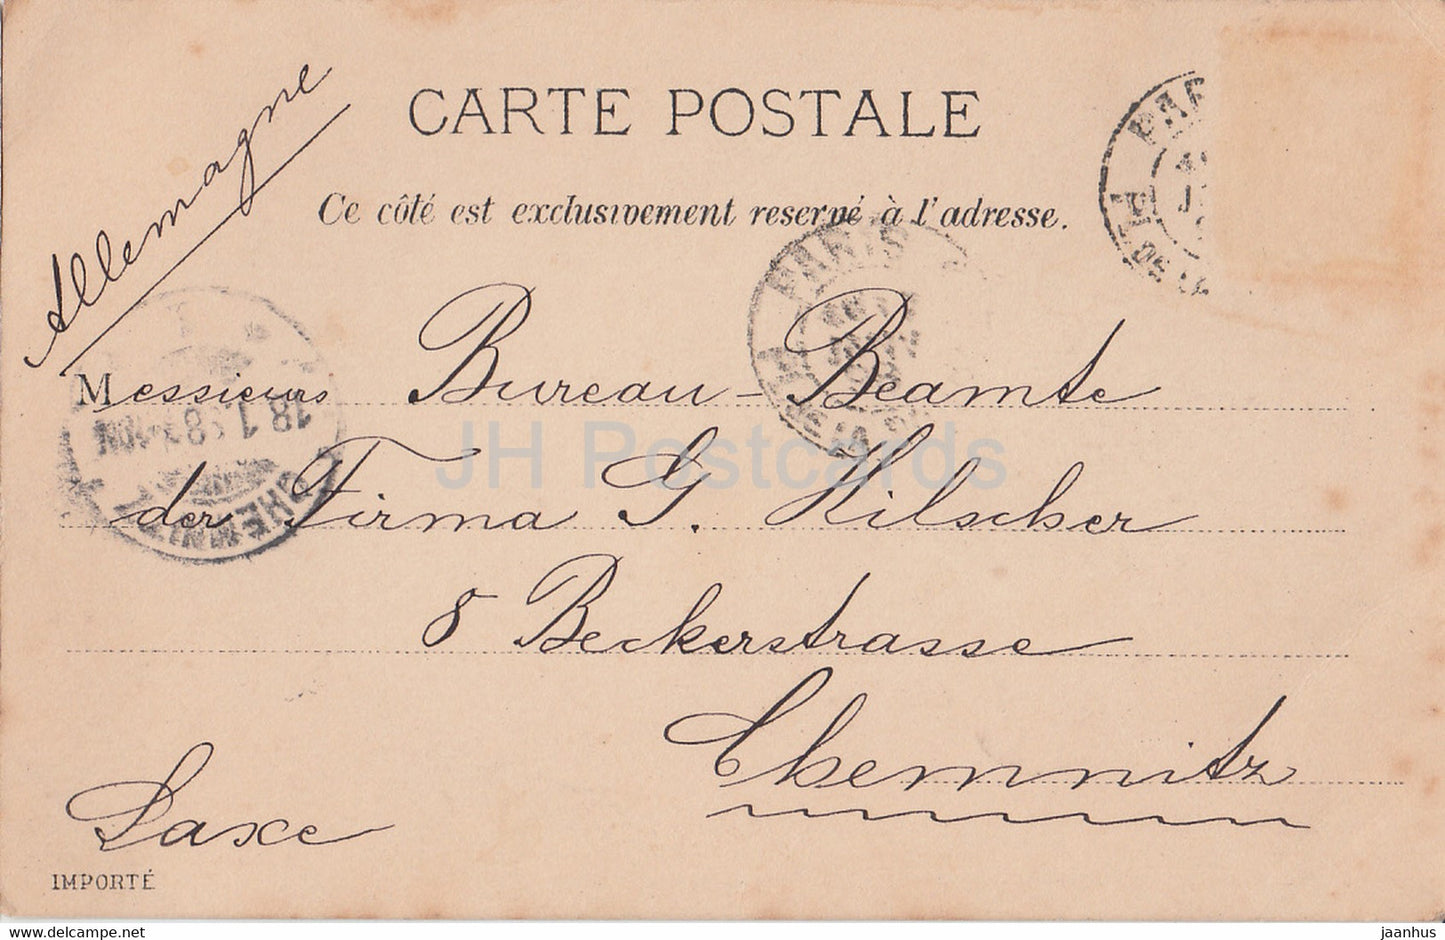 Allemagne
CARTE POSTALE
Ce côté est exclusivement reservé à l'adresse.
PARIS
PARIS
DE LA
Messieurs Bureau-Beamte
der Firma G. Hilscher
8 Beckerstrasse
Chemnitz
Saxe
18.1.
CHEMNITZ
IMPORTÉ
JH Postcards
jaanhus